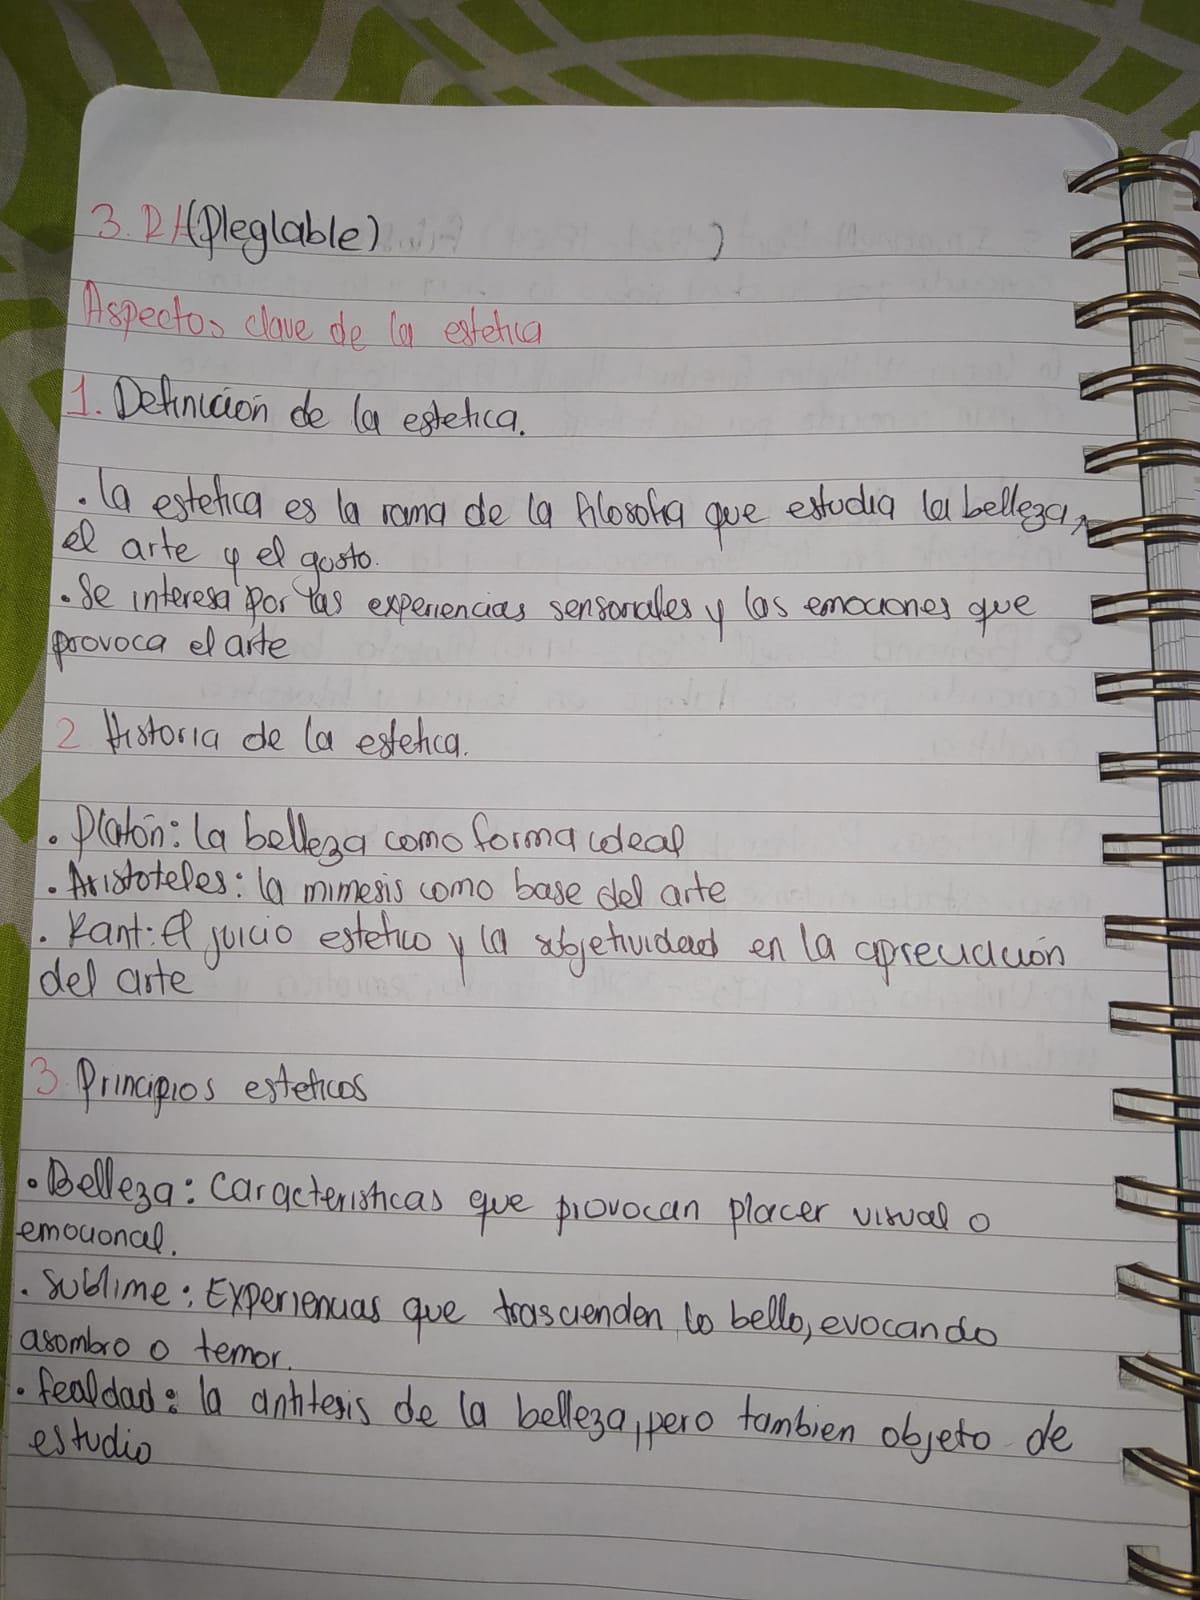 3. R/(Pleglable)
Aspectos clave de la estetica
1. Definición de la estetica.
. la estetica es la rama de la filosofia que estudia la belleza,
el arte y el gusto.
. Se interesa por las experiencias sensoriales y las emociones que
provoca el arte
2 Historia de la estetica.
. Platón: la belleza como forma ideal
. Aristoteles: la mimesis como base del arte
. Kant: El juicio estetico y la subjetividad en la apreciación
del arte
3. Principios esteticos
. Belleza: Caracteristicas que provocan placer visual o
emocional.
. Sublime: Experiencias que trascienden lo bello, evocando
asombro o temor.
. fealdad: la antitesis de la belleza, pero tambien objeto de
estudio